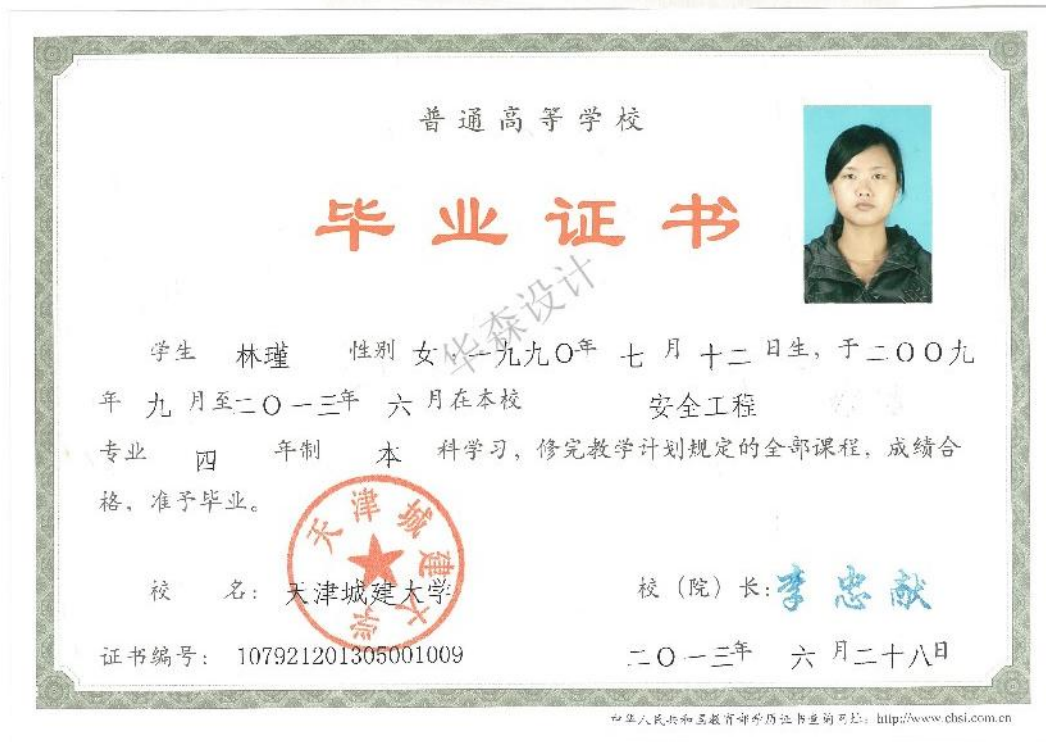 普通高等学校
毕业证书
华森设计
学生 林瑾 性别 女，一九九〇年 七 月 十二 日生，于二〇〇九
年 九 月至二〇一三年 六 月在本校 安全工程
专业 四 年制 本 科学习，修完教学计划规定的全部课程，成绩合
格，准予毕业。
天津城建大学
校 名：天津城建大学 校（院）长：李忠献
证书编号： 107921201305001009 二〇一三年 六 月二十八日
中华人民共和国教育部学历证书查询网址：http://www.chsi.com.cn